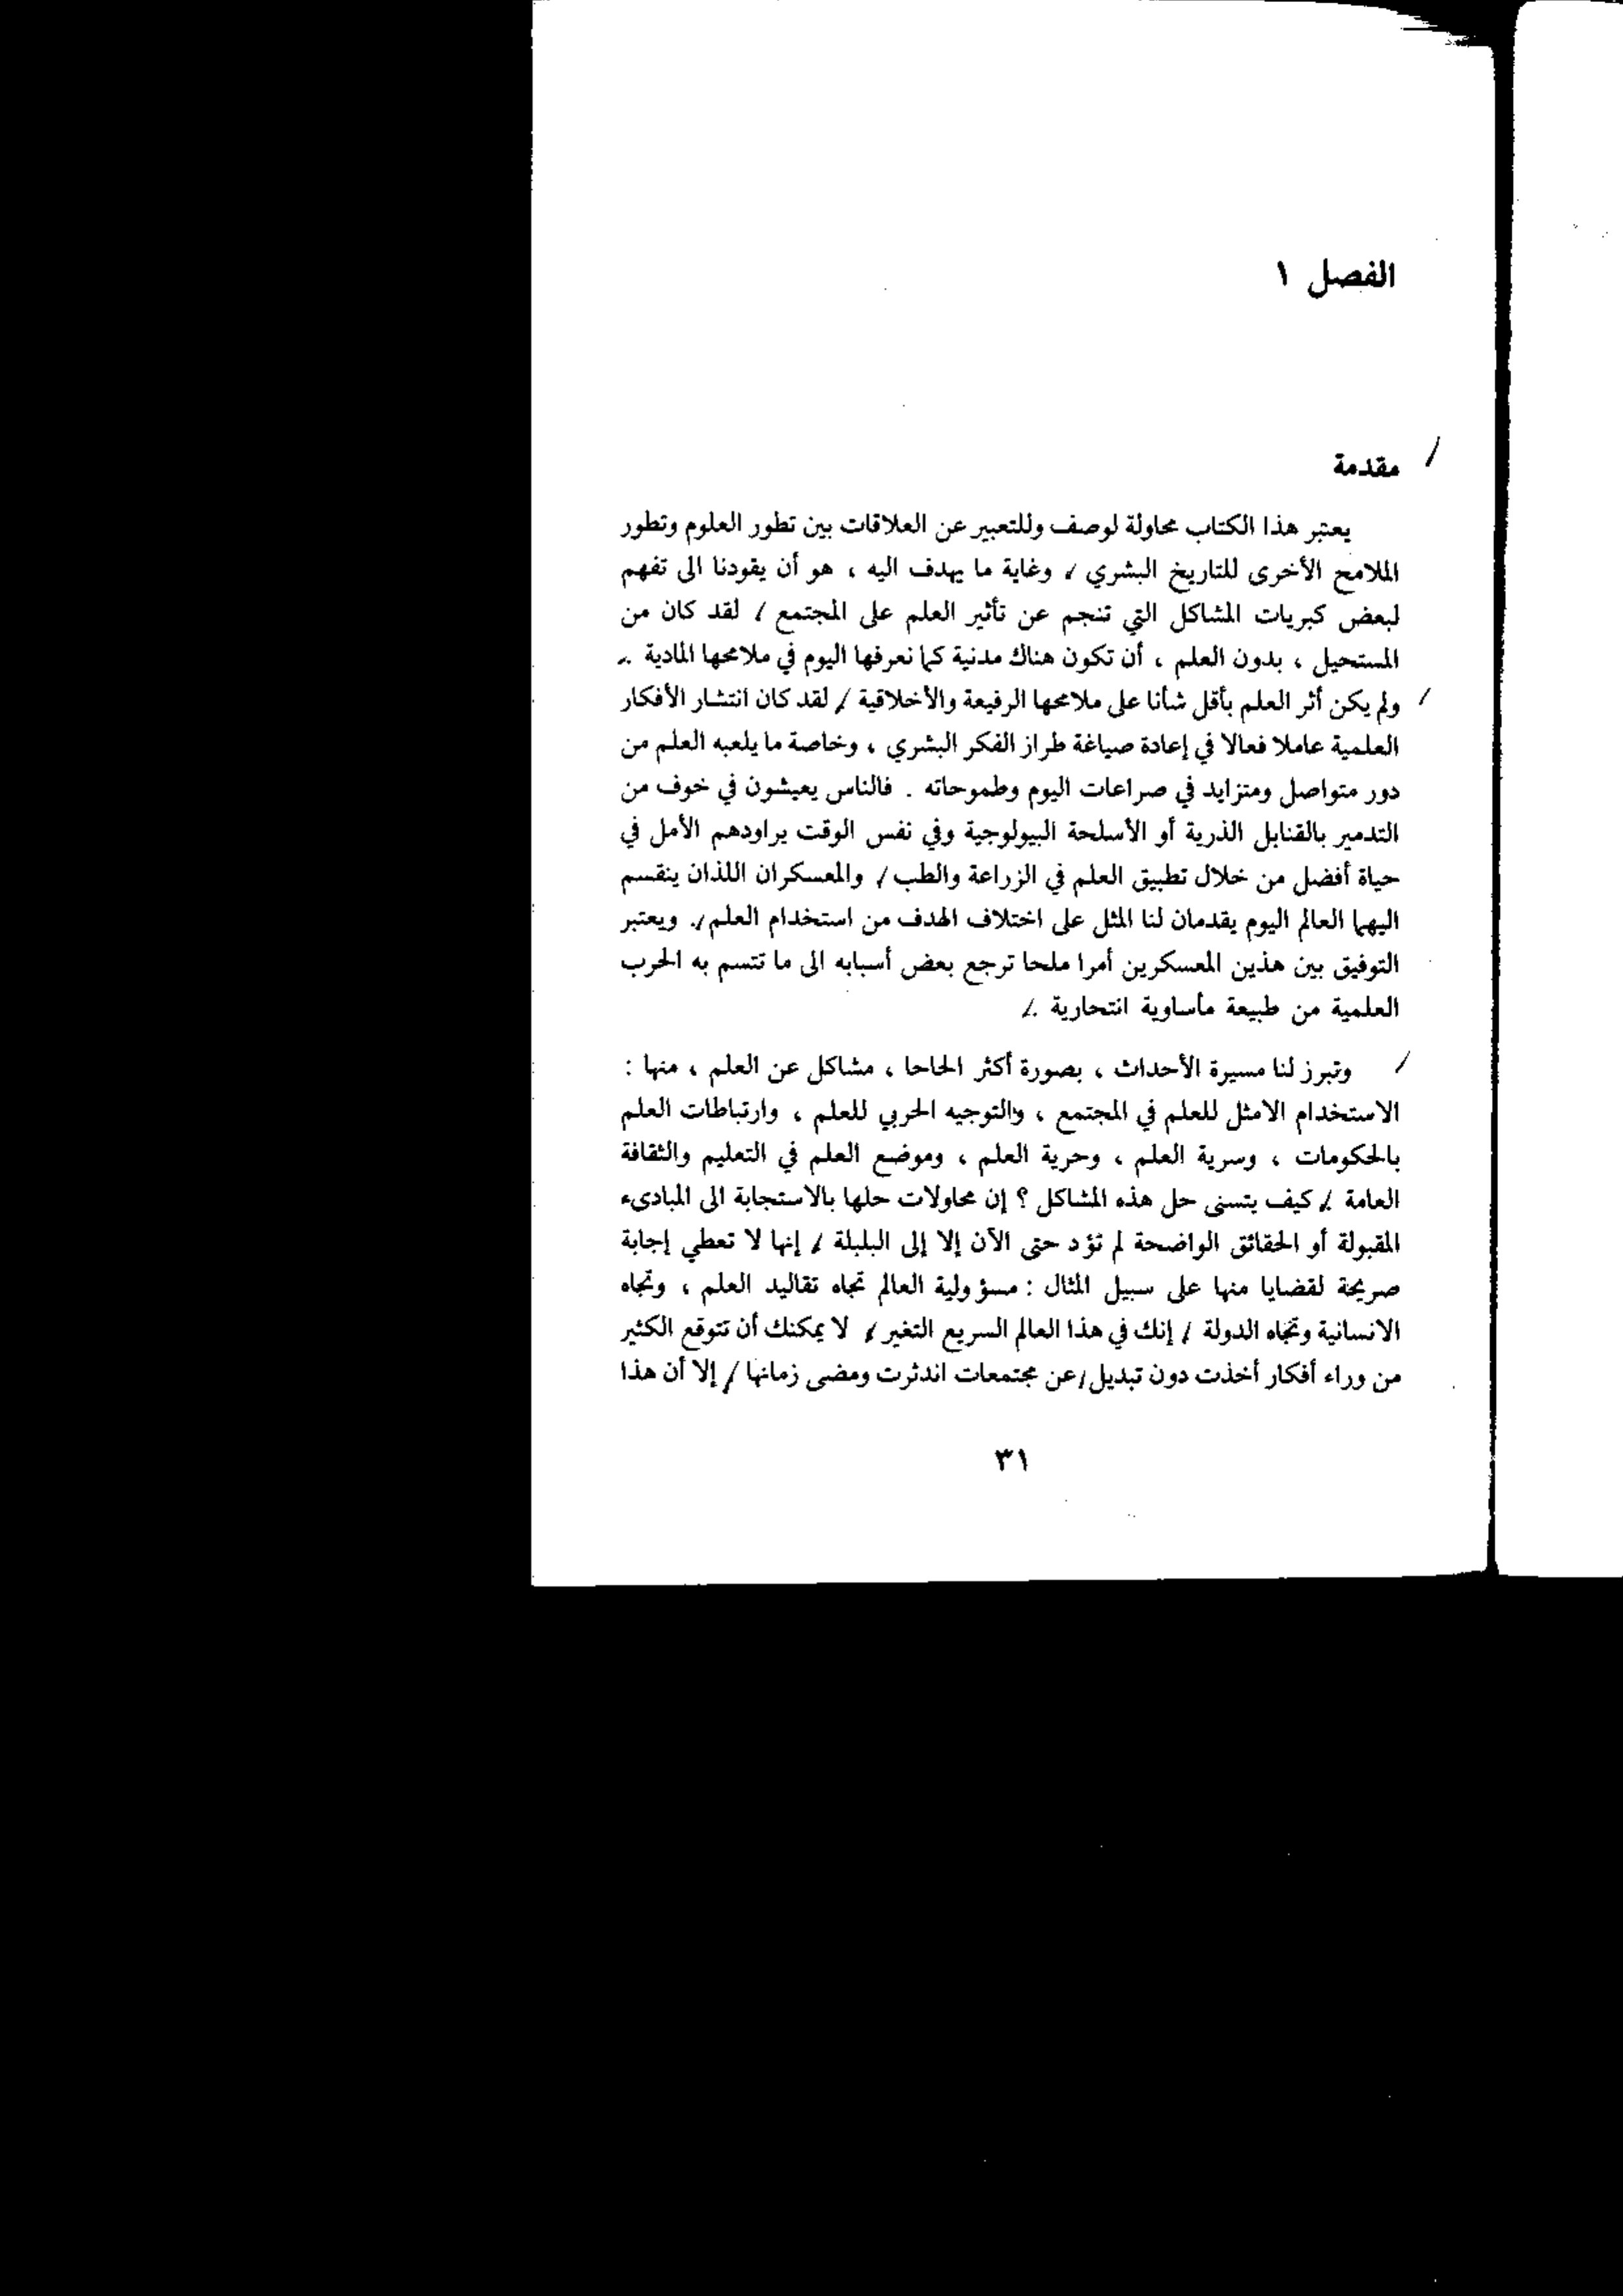 الفصل ١
مقدمة
يعتبر هذا الكتاب محاولة لوصف وللتعبير عن العلاقات بين تطور العلوم وتطور
الملامح الأخرى للتاريخ البشري / وغاية ما يهدف اليه ، هو أن يقودنا الى تفهم
لبعض كبريات المشاكل التي تنجم عن تأثير العلم على المجتمع / لقد كان من
المستحيل ، بدون العلم ، أن تكون هناك مدنية كما نعرفها اليوم في ملامحها المادية .
ولم يكن أثر العلم بأقل شأنا على ملامحها الرفيعة والأخلاقية / لقد كان انتشار الأفكار
العلمية عاملا فعالا في إعادة صياغة طراز الفكر البشري ، وخاصة ما يلعبه العلم من
دور متواصل ومتزايد في صراعات اليوم وطموحاته . فالناس يعيشون في خوف من
التدمير بالقنابل الذرية أو الأسلحة البيولوجية وفي نفس الوقت يراودهم الأمل في
حياة أفضل من خلال تطبيق العلم في الزراعة والطب / والمعسكران اللذان ينقسم
اليهما العالم اليوم يقدمان لنا المثل على اختلاف الهدف من استخدام العلم /. ويعتبر
التوفيق بين هذين المعسكرين أمرا ملحا ترجع بعض أسبابه الى ما تتسم به الحرب
العلمية من طبيعة مأساوية انتحارية /.
وتبرز لنا مسيرة الأحداث ، بصورة أكثر الحاحا ، مشاكل عن العلم ، منها :
الاستخدام الامثل للعلم في المجتمع ، والتوجيه الحربي للعلم ، وارتباطات العلم
بالحكومات ، وسرية العلم ، وحرية العلم ، وموضع العلم في التعليم والثقافة
العامة /. كيف يتسنى حل هذه المشاكل ؟ إن محاولات حلها بالاستجابة الى المبادىء
المقبولة أو الحقائق الواضحة لم تؤد حتى الآن إلا إلى البلبلة / إنها لا تعطي إجابة
صريحة لقضايا منها على سبيل المثال : مسؤولية العالم تجاه تقاليد العلم ، وتجاه
الانسانية وتجاه الدولة / إنك في هذا العالم السريع التغير / لا يمكنك أن تتوقع الكثير
من وراء أفكار أخذت دون تبديل / عن مجتمعات اندثرت ومضى زمانها / إلا أن هذا
٣١